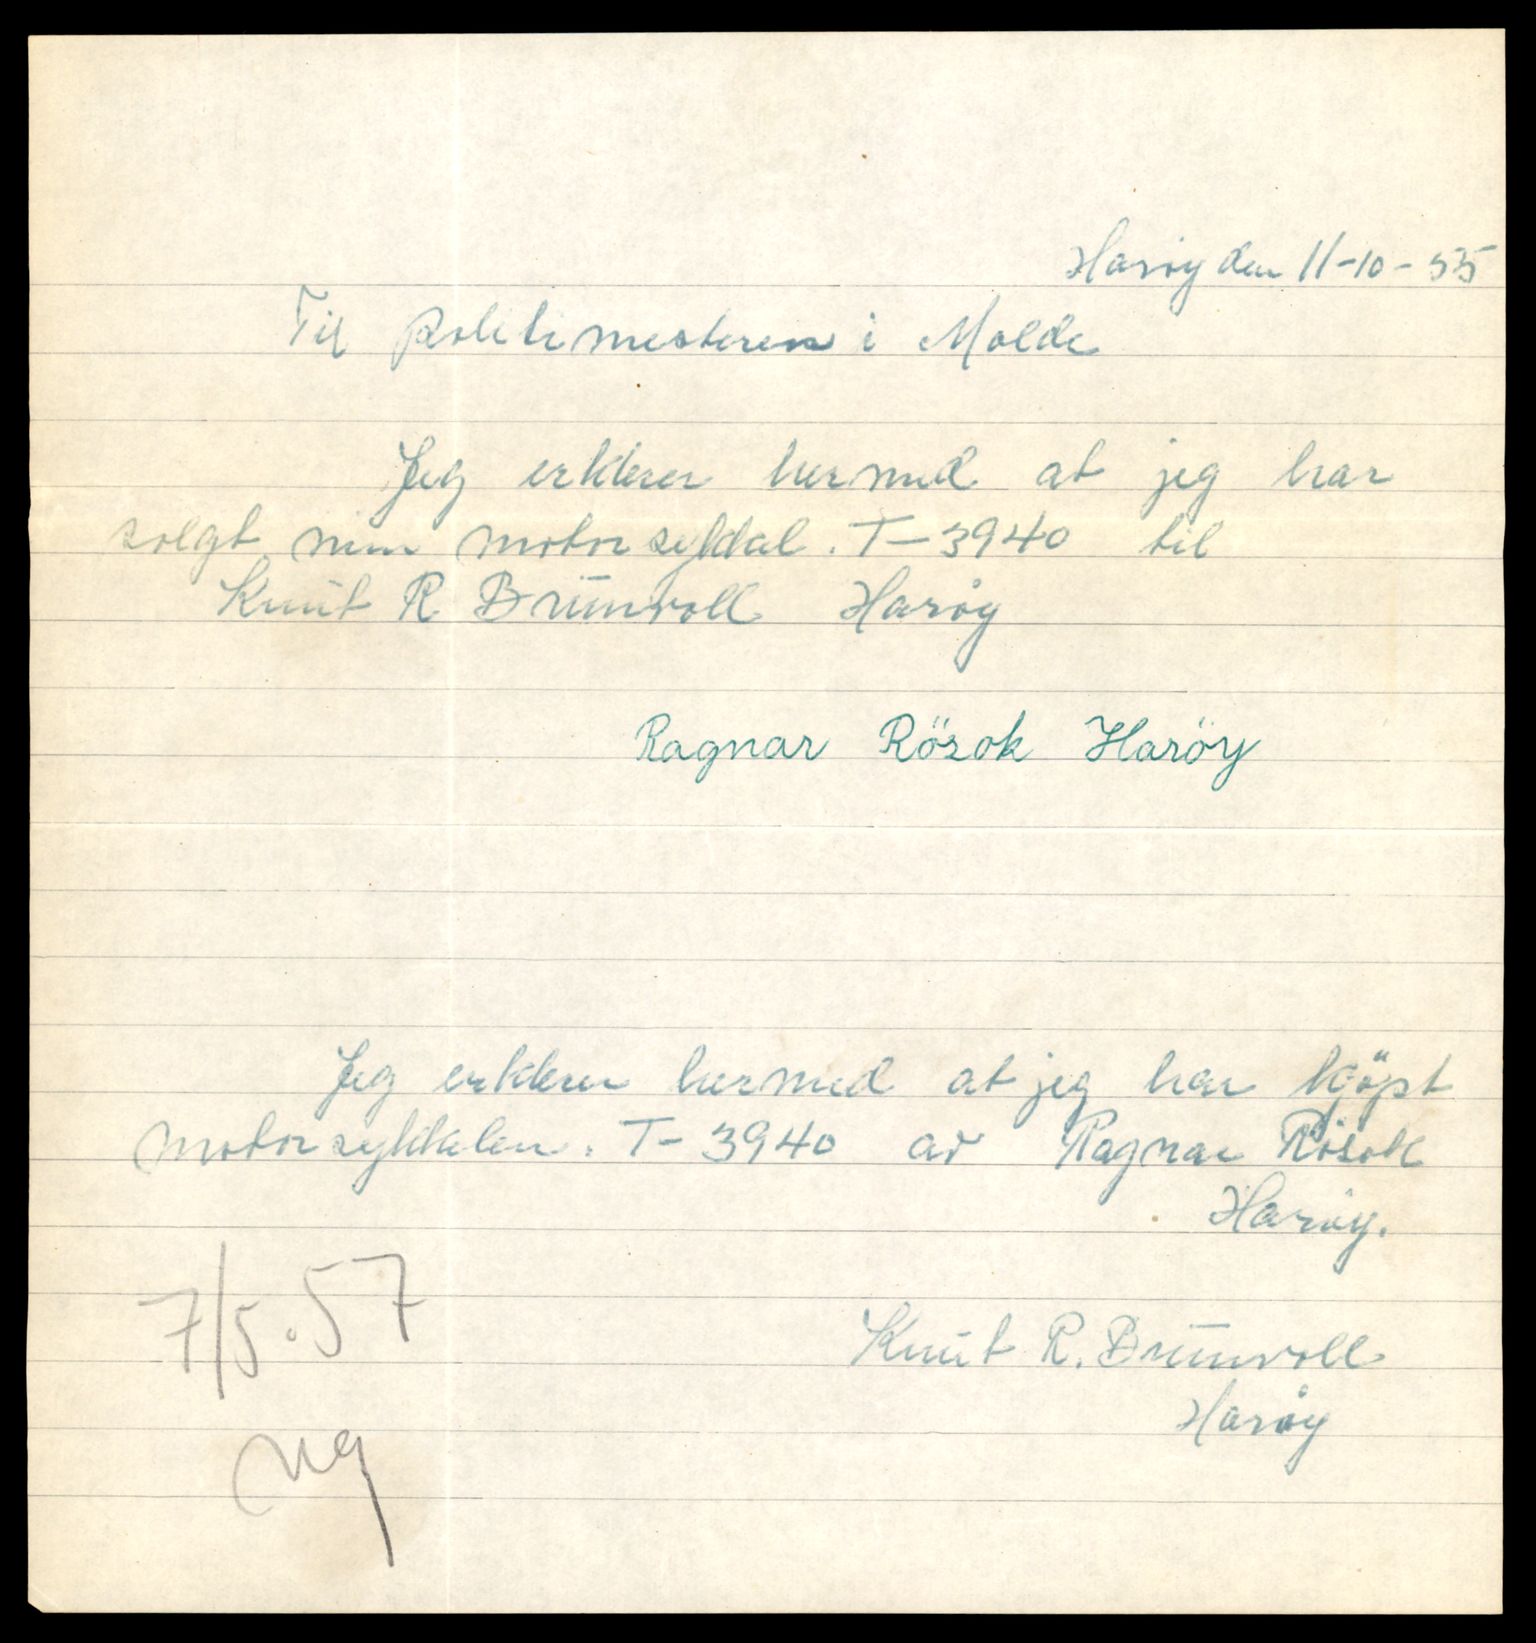 Harøy den 11-10-55
Til Politimesteren i Molde
Jeg erklerer hermed at jeg har
solgt min motorsykkel. T-3940 til
Knut R Brunvoll Harøy
Ragnar Rösok Haröy
Jeg erklerer hermed at jeg har kjöpt
motorsykkelen. T-3940 av Ragnar Rösok
Harøy.
7/5.57
Knut R. Brunvoll
Harøy